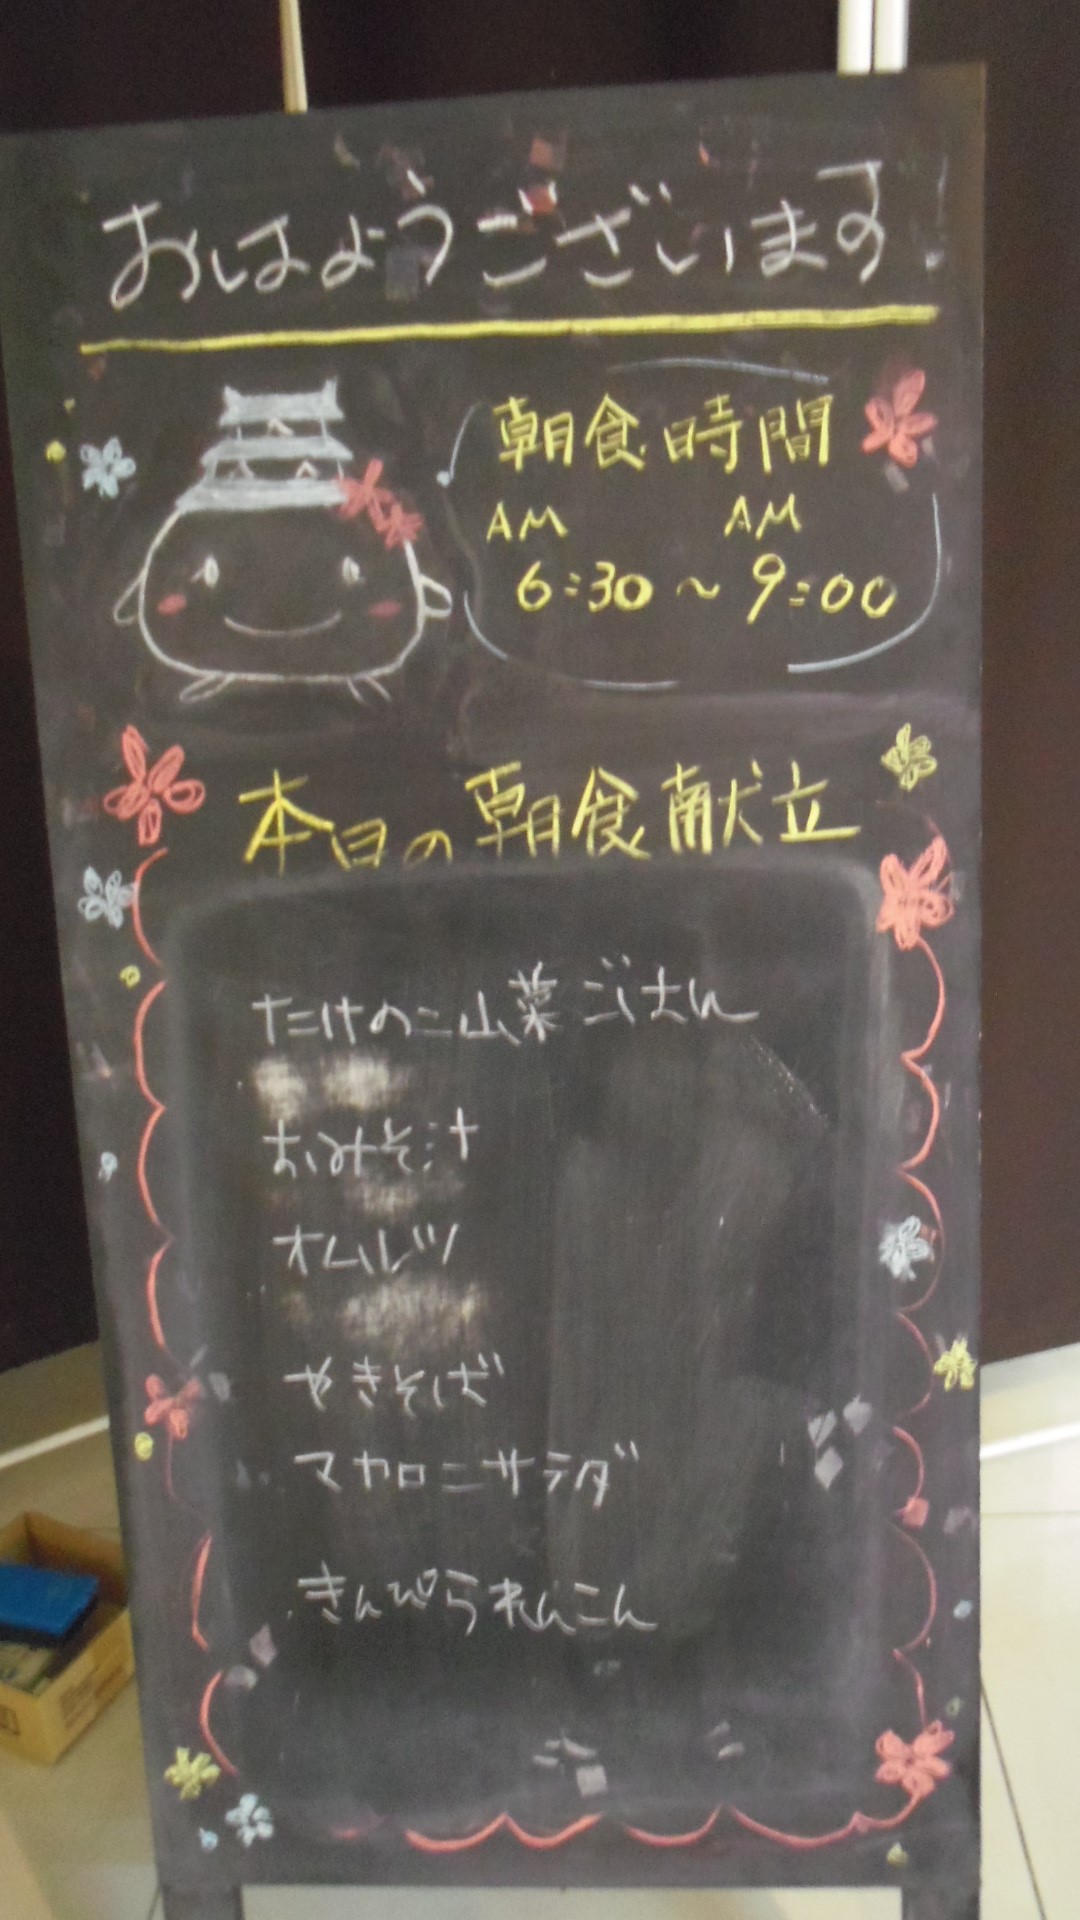 おはようございます
朝食時間
AM AM
6:30〜9:00
本日の朝食献立
たけのこ山菜ごはん
おみそ汁
オムレツ
やきそば
マカロニサラダ
きんぴられんこん